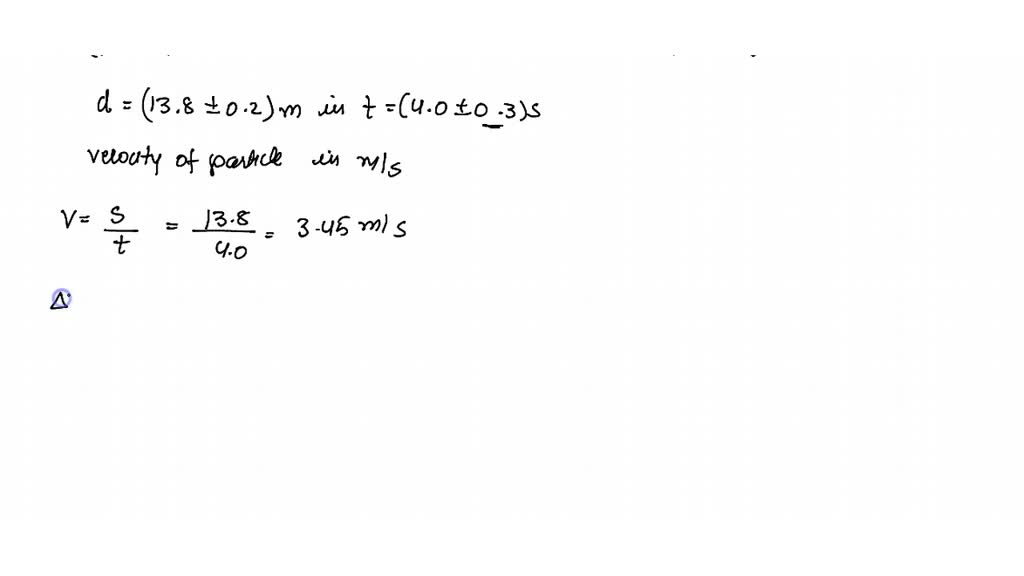 d = (13.8 ± 0.2) m in t = (4.0 ± 0.3) s
velocity of particle in m/s
V = s/t = 13.8/4.0 = 3.45 m/s
Δ